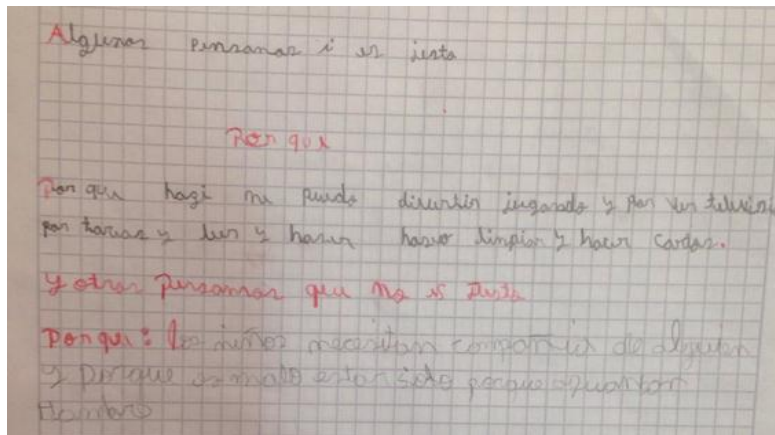 Algunas pensonas i es justa
Por que
Por que hagi me puedo divertir jugando y por ver
por tareas y leer y haser haseo limpiar y hacer cartas.
y otras personas que no es Justo
por que: los niños necesitan compañia de alguien
y porque es malo estar solo porque aguantan
Hambre